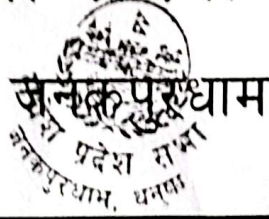 जनकपुरधाम
प्रदेश सभा
जनकपुरधाम, धनुषा